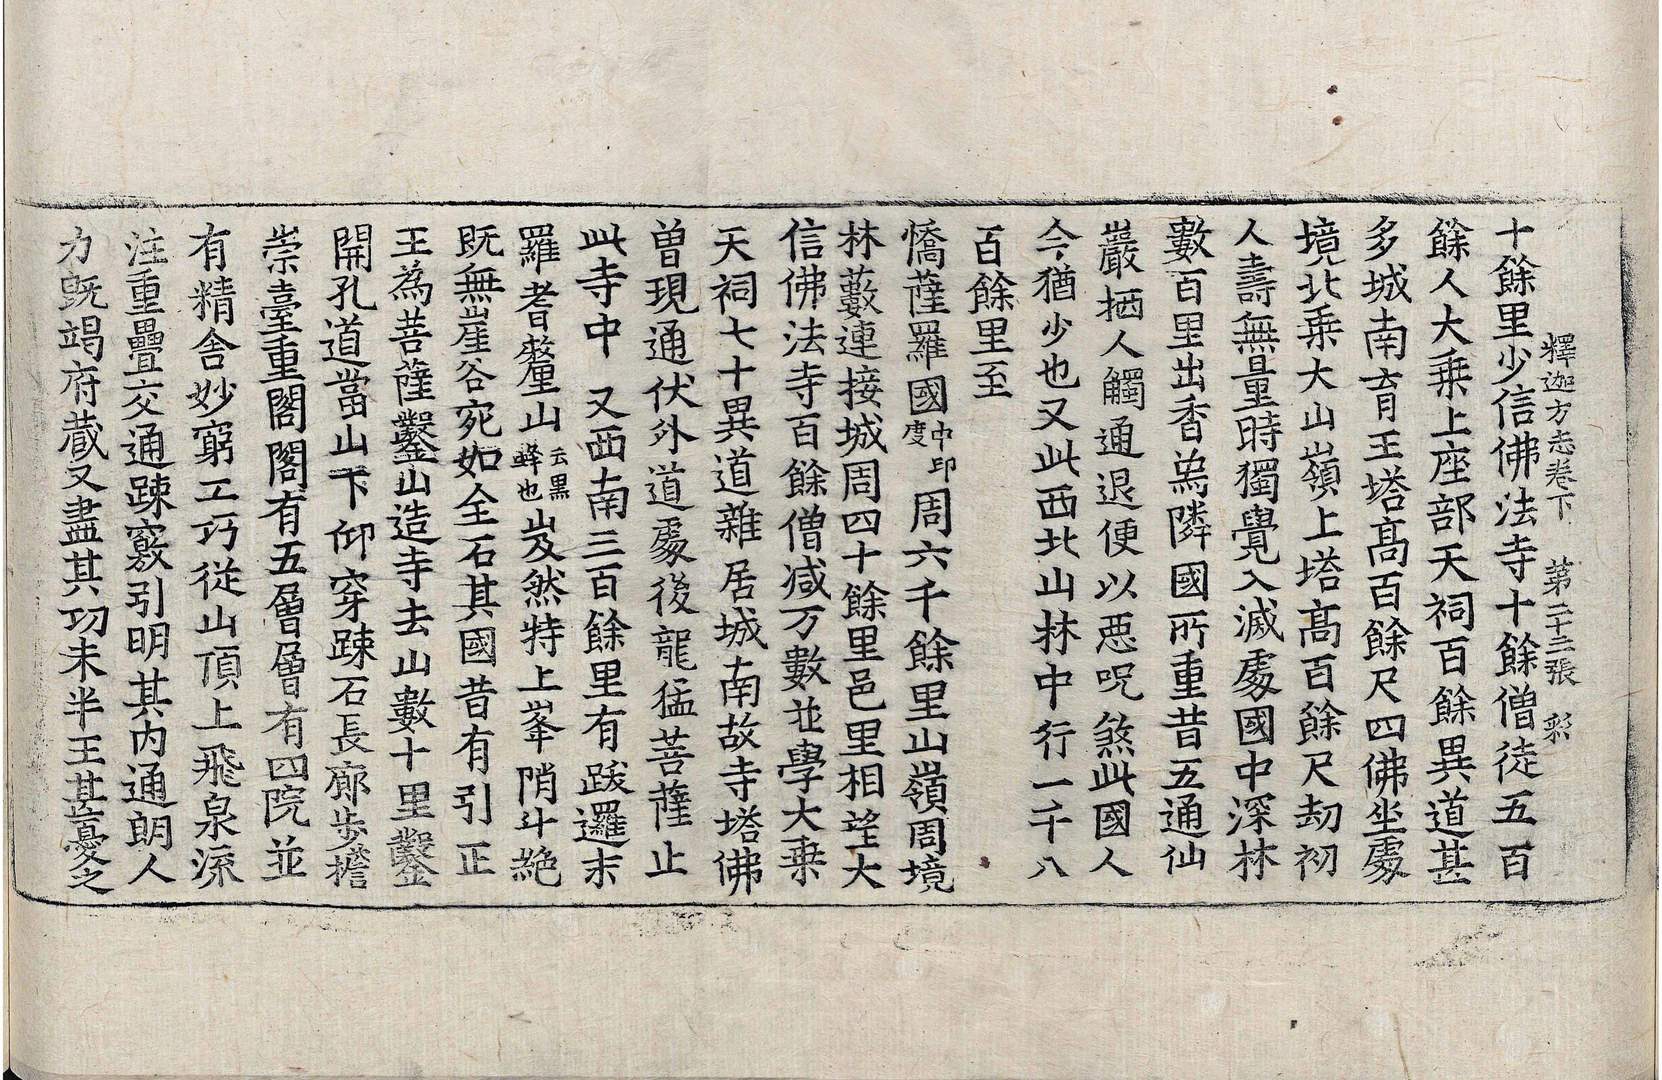 釋迦方志卷下　第二十三張　彩
十餘里少信佛法寺十餘僧徒五百
餘人大乗上座部天祠百餘異道甚
多城南育王塔髙百餘尺四佛坐處
境北乗大山嶺上塔髙百餘尺刧初
人壽無量時獨覺入滅處國中深林
數百里出香烏隣國所重昔五通仙
巖栖人觸通退便以惡呪煞此國人
今猶少也又此西北山林中行一千八
百餘里至
憍薩羅國中印度周六千餘里山嶺周境
林藪連接城周四十餘里邑里相望大
信佛法寺百餘僧减万數並學大乗
天祠七十異道雜居城南故寺塔佛
曽現通伏外道處後龍猛菩薩止
此寺中　又西南三百餘里有跋邏末
羅耆釐山云黒蜂也岌然特上峯陗斗絶
既無崖谷宛如全石其國昔有引正
王為菩薩鑿山造寺去山數十里鑿
開孔道當山下仰穿踈石長廊歩檐
崇臺重閣閣有五層層有四院並
有精舍妙窮工巧從山頂上飛泉流
注重疊交通踈竅引明其内通朗人
力既竭府藏又盡其功未半王甚憂之